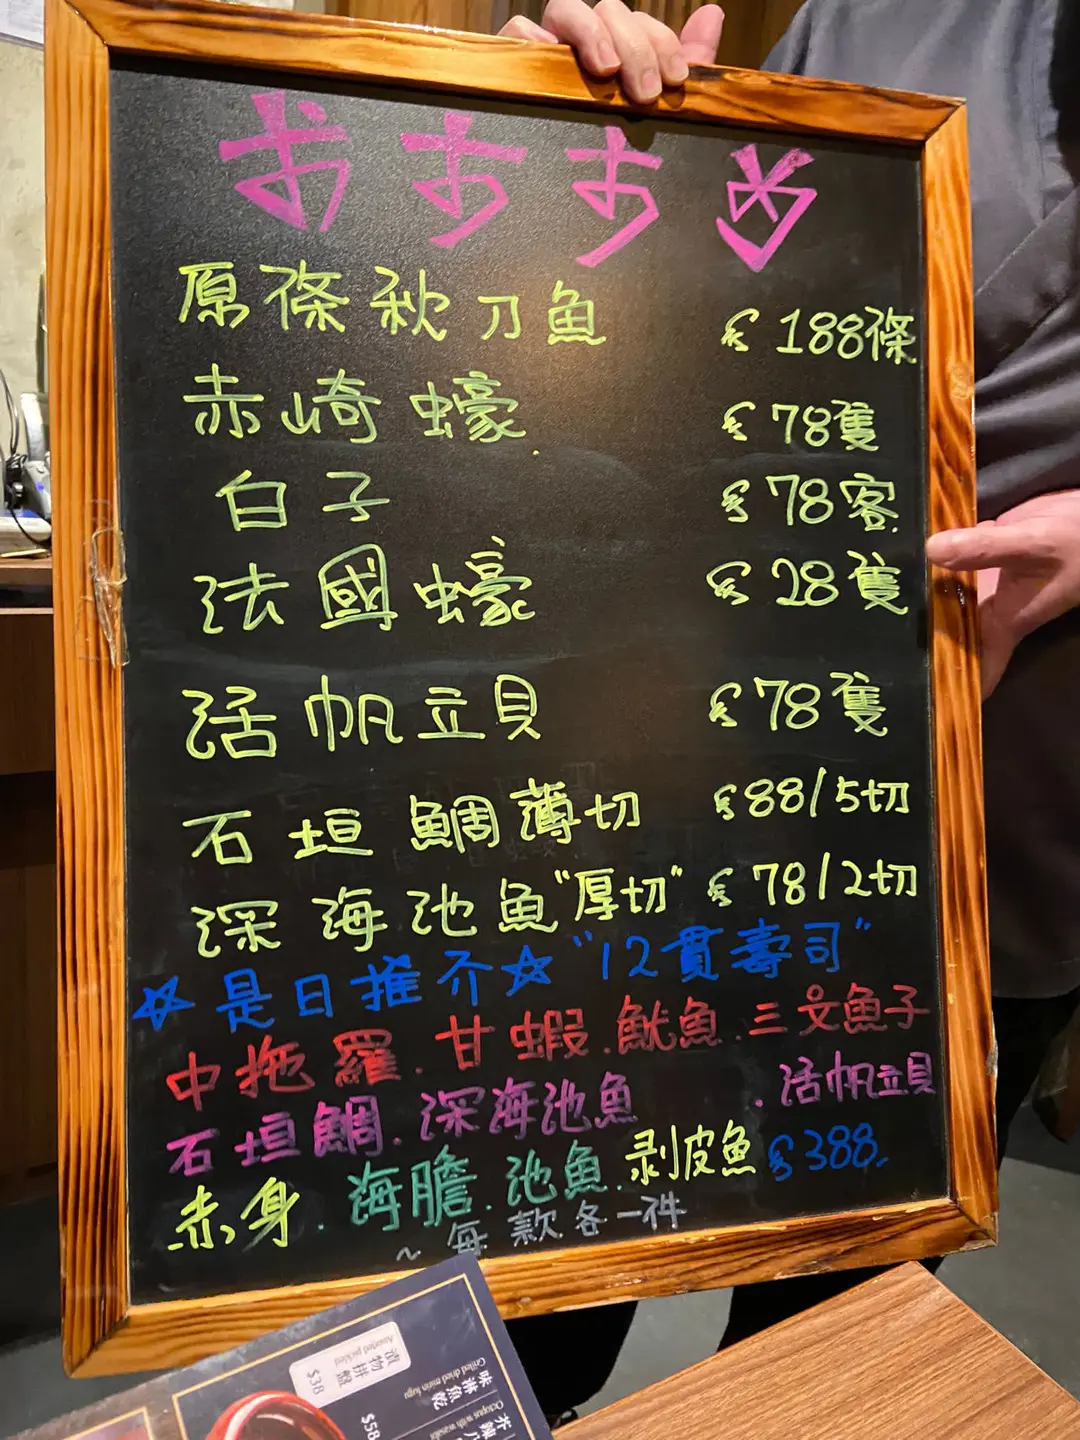 おすすめ
原條秋刀魚 $188條
赤崎蠔 $78隻
白子 $78客
法國蠔 $28隻
活帆立貝 $78隻
石垣鯛薄切 $88/5切
深海池魚"厚切" $78/2切
☆是日推介☆"12貫壽司"
中拖羅.甘蝦.魷魚.三文魚子
石垣鯛.深海池魚.活帆立貝
赤身.海膽.池魚.剥皮魚 $388
~每款各一件
漬物拼盤
Assorted pickled
$38
味淋魚乾
Grilled dried mirin fugu
$58
Octopus with wasabi